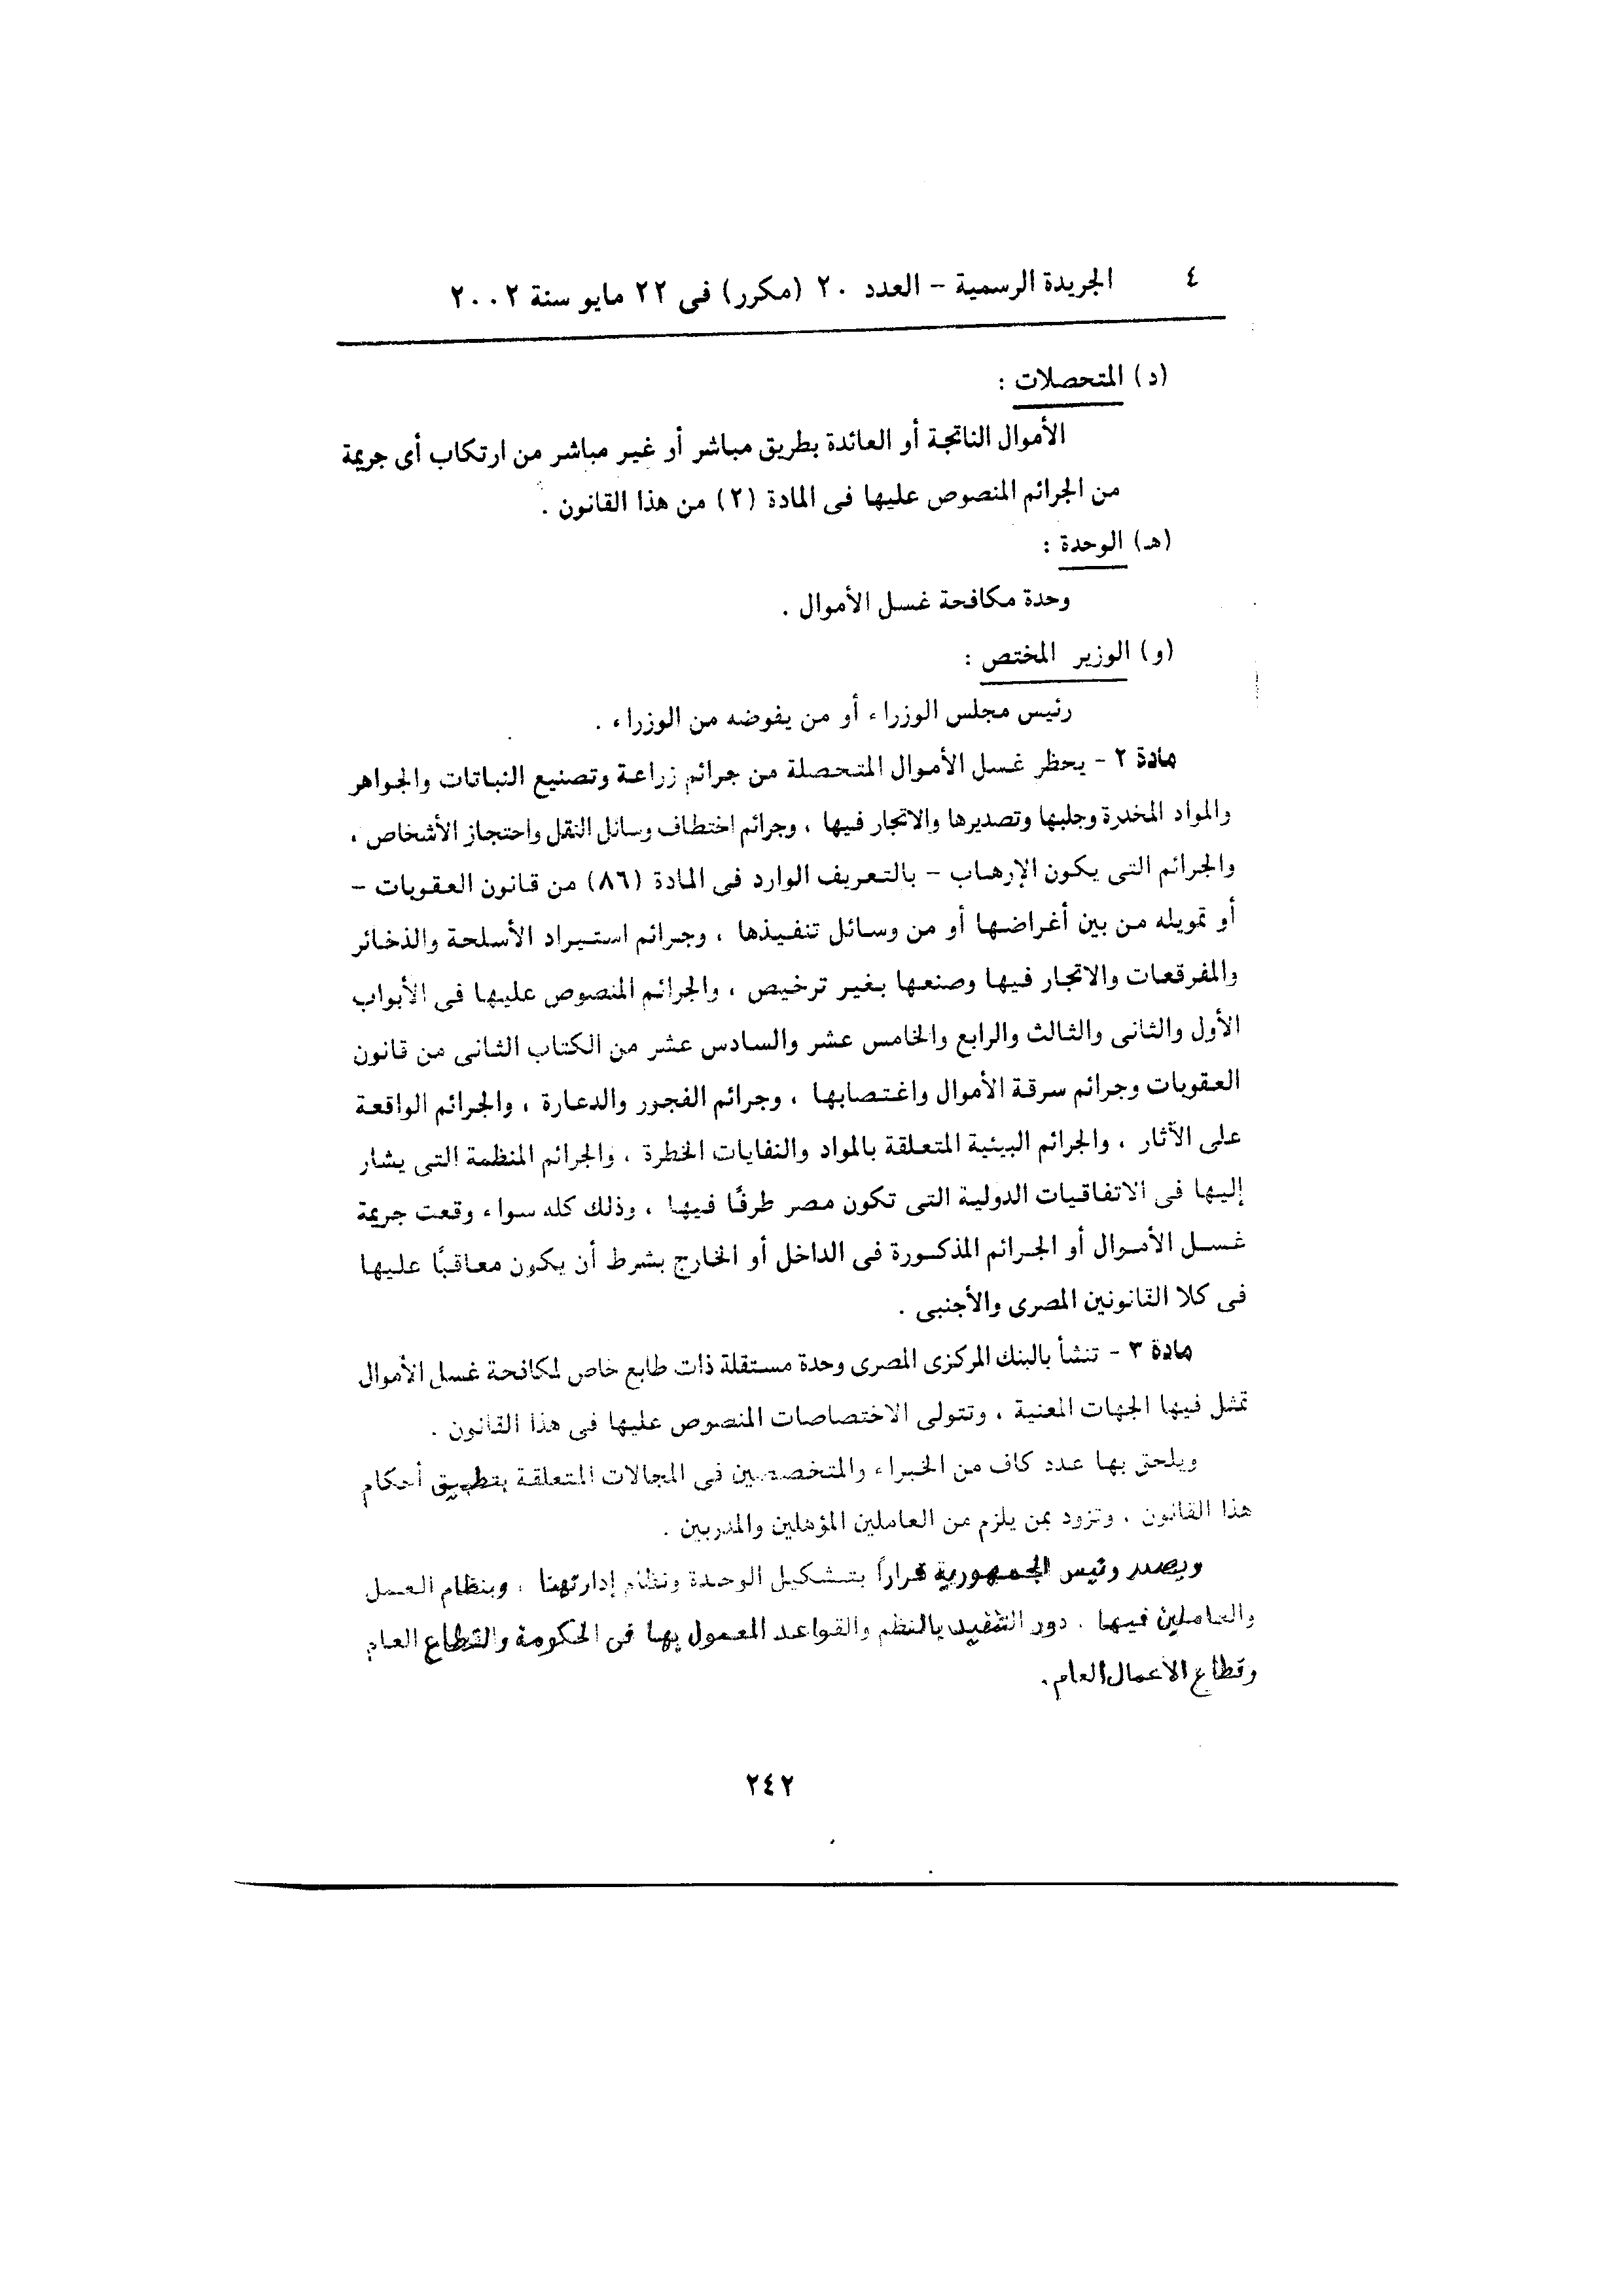 ٤ الجريدة الرسمية – العدد ٢٠ (مكرر) فى ٢٢ مايو سنة ٢٠٠٢
(د) المتحصلات :
الأموال الناتجة أو العائدة بطريق مباشر أو غير مباشر من ارتكاب أى جريمة
من الجرائم المنصوص عليها فى المادة (٢) من هذا القانون .
(هـ) الوحدة :
وحدة مكافحة غسل الأموال .
(و) الوزير المختص :
رئيس مجلس الوزراء أو من يفوضه من الوزراء .
مادة ٢ - يحظر غسل الأموال المتحصلة من جرائم زراعة وتصنيع النباتات والجواهر
والمواد المخدرة وجلبها وتصديرها والاتجار فيها ، وجرائم اختطاف وسائل النقل واحتجاز الأشخاص ،
والجرائم التى يكون الإرهاب – بالتعريف الوارد فى المادة (٨٦) من قانون العقوبات –
أو تمويله من بين أغراضها أو من وسائل تنفيذها ، وجرائم استيراد الأسلحة والذخائر
والمفرقعات والاتجار فيها وصنعها بغير ترخيص ، والجرائم المنصوص عليها فى الأبواب
الأول والثانى والثالث والرابع والخامس عشر والسادس عشر من الكتاب الثانى من قانون
العقوبات وجرائم سرقة الأموال واغتصابها ، وجرائم الفجور والدعارة ، والجرائم الواقعة
على الآثار ، والجرائم البيئية المتعلقة بالمواد والنفايات الخطرة ، والجرائم المنظمة التى يشار
إليها فى الاتفاقيات الدولية التى تكون مصر طرفًا فيها ، وذلك كله سواء وقعت جريمة
غسل الأموال أو الجرائم المذكورة فى الداخل أو الخارج بشرط أن يكون معاقبًا عليها
فى كلا القانونين المصرى والأجنبى .
مادة ٣ - تنشأ بالبنك المركزى المصرى وحدة مستقلة ذات طابع خاص لمكافحة غسل الأموال
تمثل فيها الجهات المعنية ، وتتولى الاختصاصات المنصوص عليها فى هذا القانون .
ويلحق بها عدد كاف من الخبراء والمتخصصين فى المجالات المتعلقة بتطبيق أحكام
هذا القانون ، وتزود بمن يلزم من العاملين المؤهلين والمدربين .
ويصدر رئيس الجمهورية قراراً بتشكيل الوحدة ونظام إدارتها ، وبنظام العمل
والعاملين فيها ، دون التقيد بالنظم والقواعد المعمول بها فى الحكومة والقطاع العام
وقطاع الأعمال العام .
٢٤٢